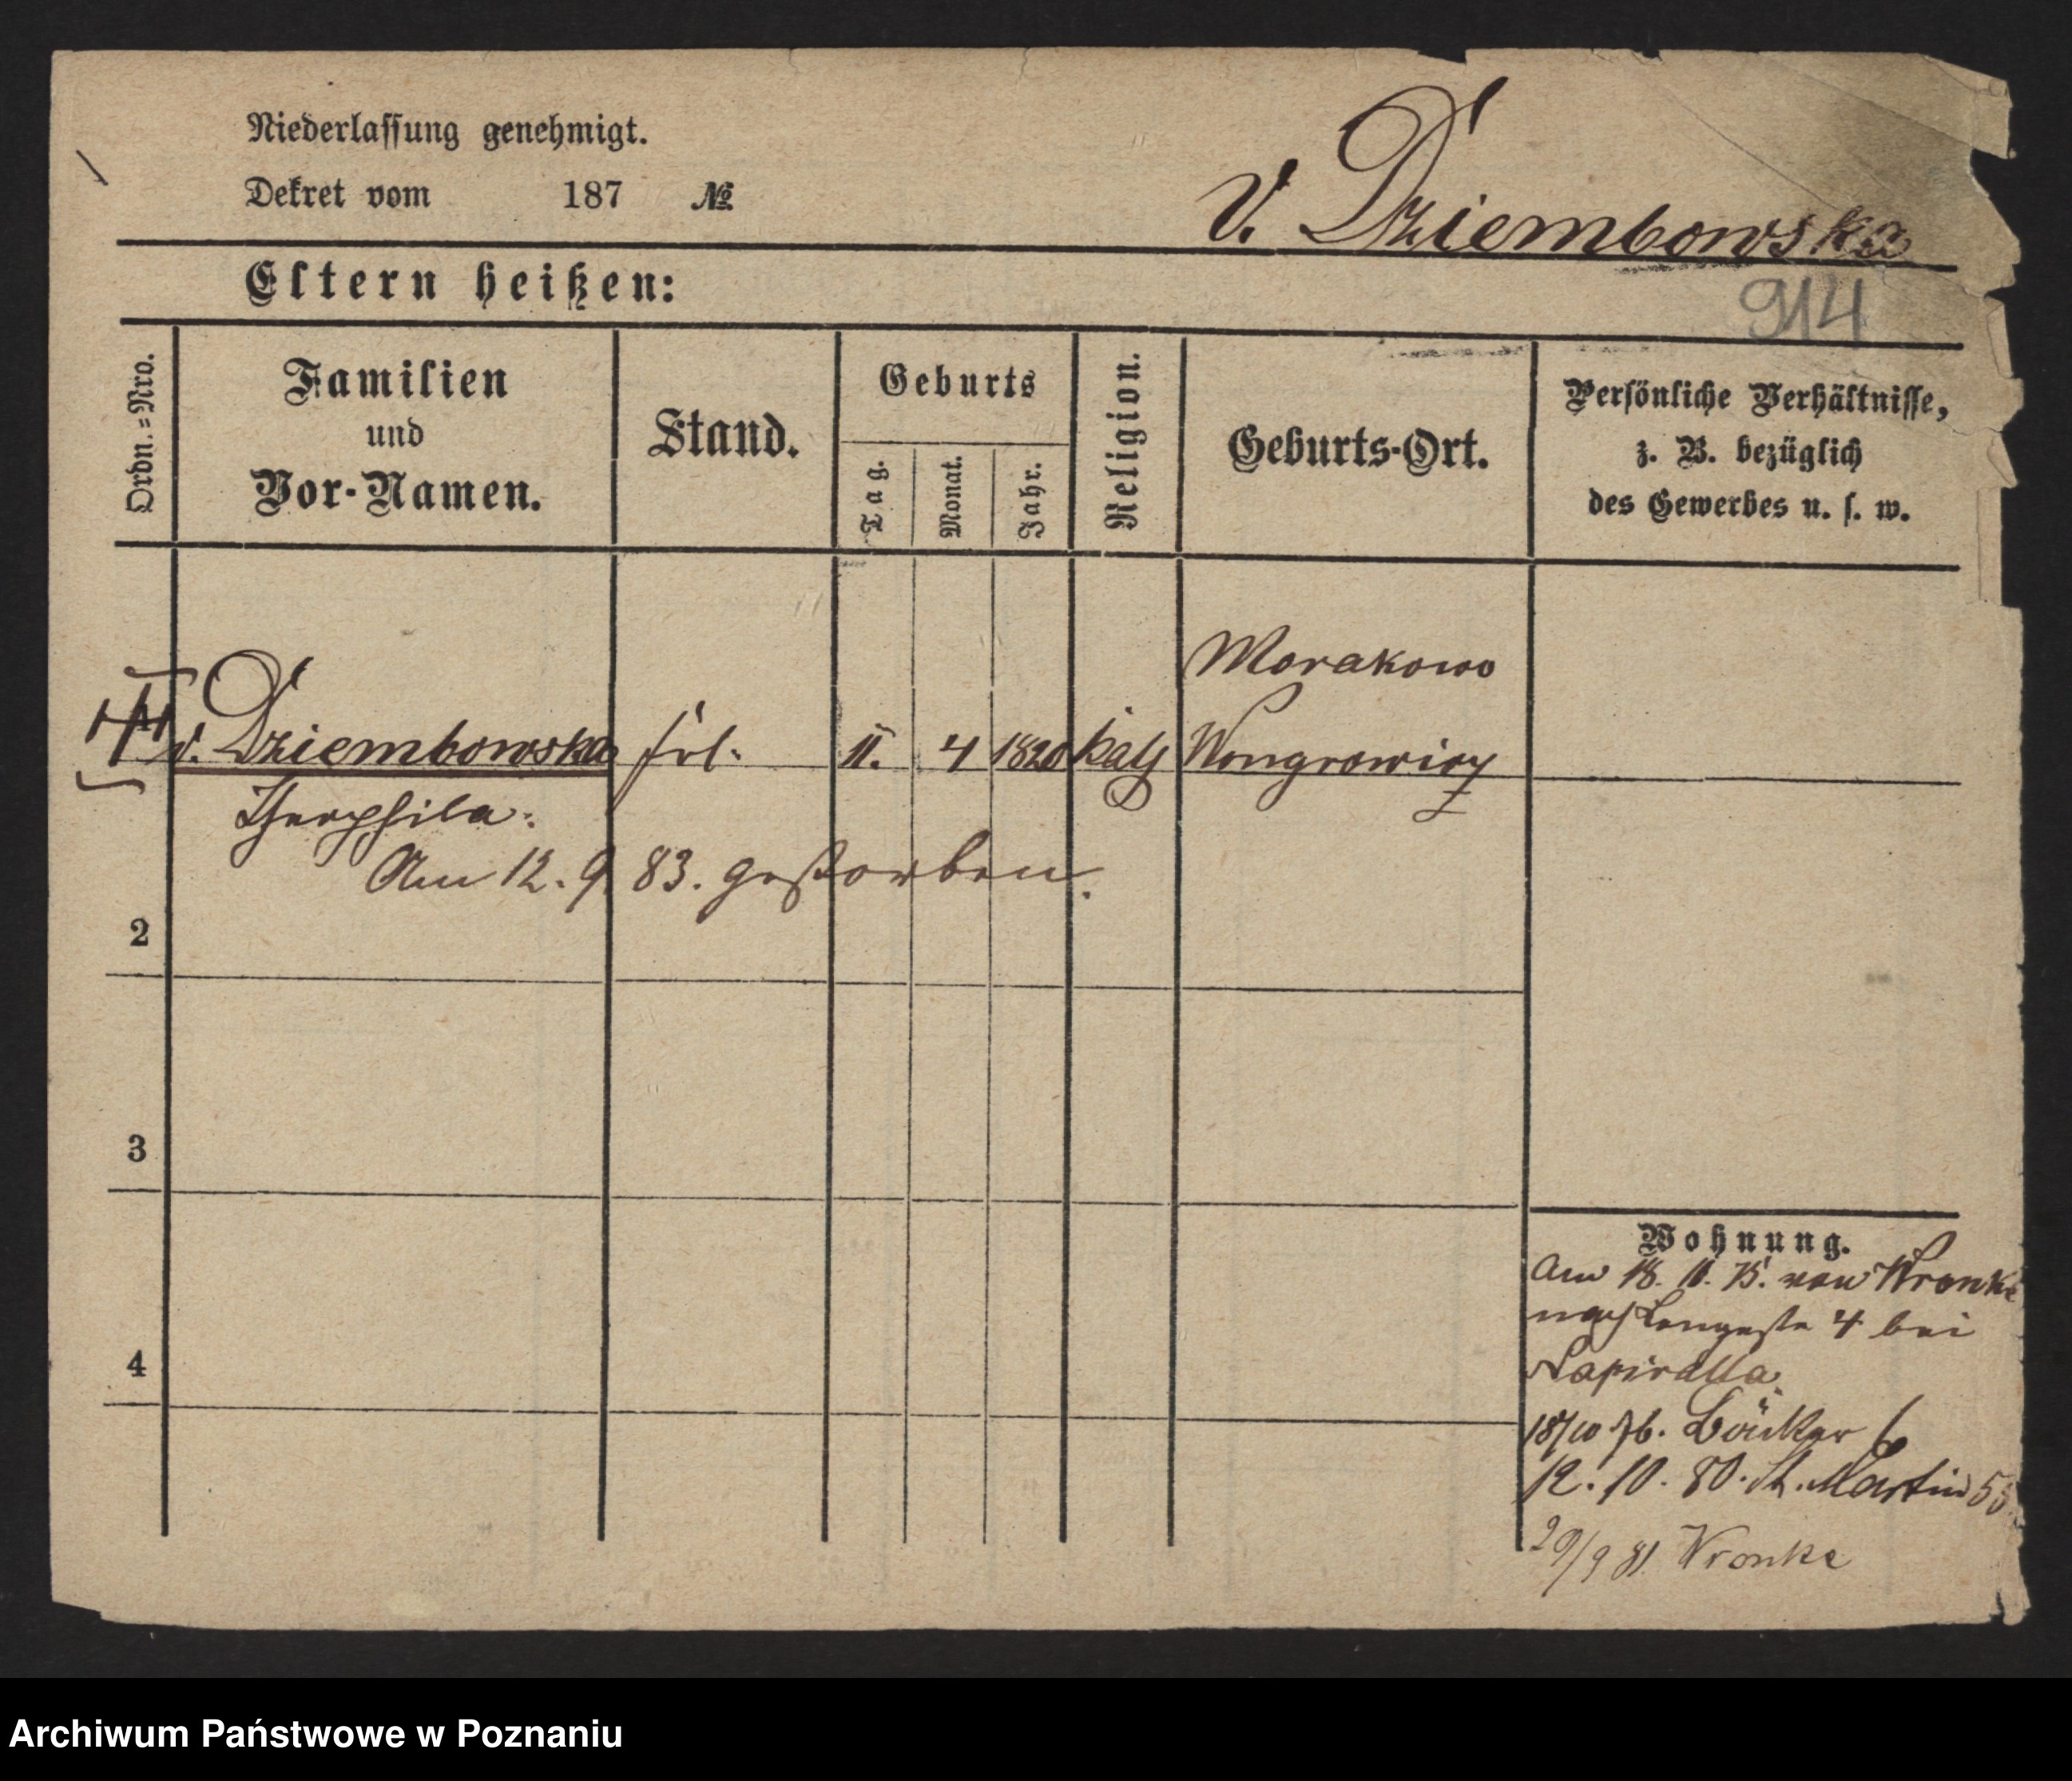 Niederlassung genehmigt.
Dekret vom 187 №
v. Dziembowska
914
Eltern heißen:
Ordn.-Nro.
Familien
und
Vor-Namen.
Stand.
Geburts
Tag.
Monat.
Jahr.
Religion.
Geburts-Ort.
Persönliche Verhältnisse,
z. B. bezüglich
des Gewerbes u. s. w.
Morakowo
v. Dziembowska frl. 11. 4 1820 kath Wongrowicz
Theophila.
Am 12. 9. 83. gestorben.
2
3
4
Wohnung.
Am 18. 11. 75. von Wronke
nach 4 bei
Napiralla
18/10 76. Bäcker 6
12. 10. 80. St. Martin
29/9 81. Wronke
Archiwum Państwowe w Poznaniu